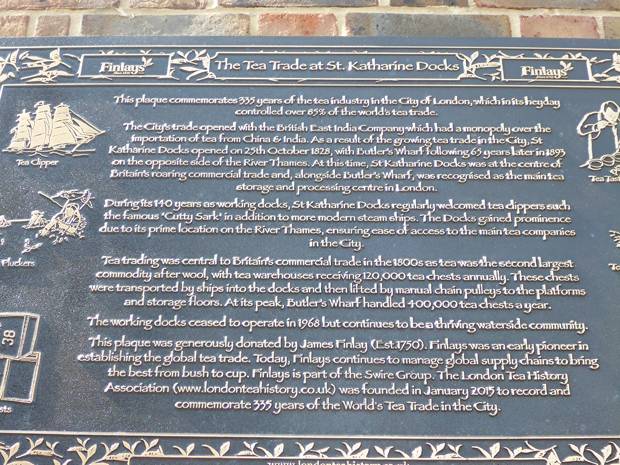 Finlays
Since 1750
The Tea Trade at St. Katharine Docks
Finlays
Since 1750
This plaque commemorates 335 years of the tea industry in the City of London, which in its heyday
controlled over 85% of the world's tea trade.
The City's trade opened with the British East India Company which had a monopoly over the
importation of tea from China & India. As a result of the growing tea trade in the City, St
Katharine Docks opened on 25th October 1828, with Butler's Wharf following 65 years later in 1893
on the opposite side of the River Thames. At this time, St Katharine Docks was at the centre of
Britain's roaring commercial trade and, alongside Butler's Wharf, was recognised as the main tea
storage and processing centre in London.
Tea Clipper
During its 140 years as working docks, St Katharine Docks regularly welcomed tea clippers such
the famous 'Cutty Sark' in addition to more modern steam ships. The Docks gained prominence
due to its prime location on the River Thames, ensuring ease of access to the main tea companies
in the City.
Pluckers
Tea trading was central to Britain's commercial trade in the 1800s as tea was the second largest
commodity after wool, with tea warehouses receiving 120,000 tea chests annually. These chests
were transported by ships into the docks and then lifted by manual chain pulleys to the platforms
and storage floors. At its peak, Butler's Wharf handled 400,000 tea chests a year.
38
The working docks ceased to operate in 1968 but continues to be a thriving waterside community.
This plaque was generously donated by James Finlay (Est.1750). Finlays was an early pioneer in
establishing the global tea trade. Today, Finlays continues to manage global supply chains to bring
the best from bush to cup. Finlays is part of the Swire Group. The London Tea History
Association (www.londonteahistory.co.uk) was founded in January 2015 to record and
commemorate 335 years of the World's Tea Trade in the City.
www.londonteahistory.co.uk